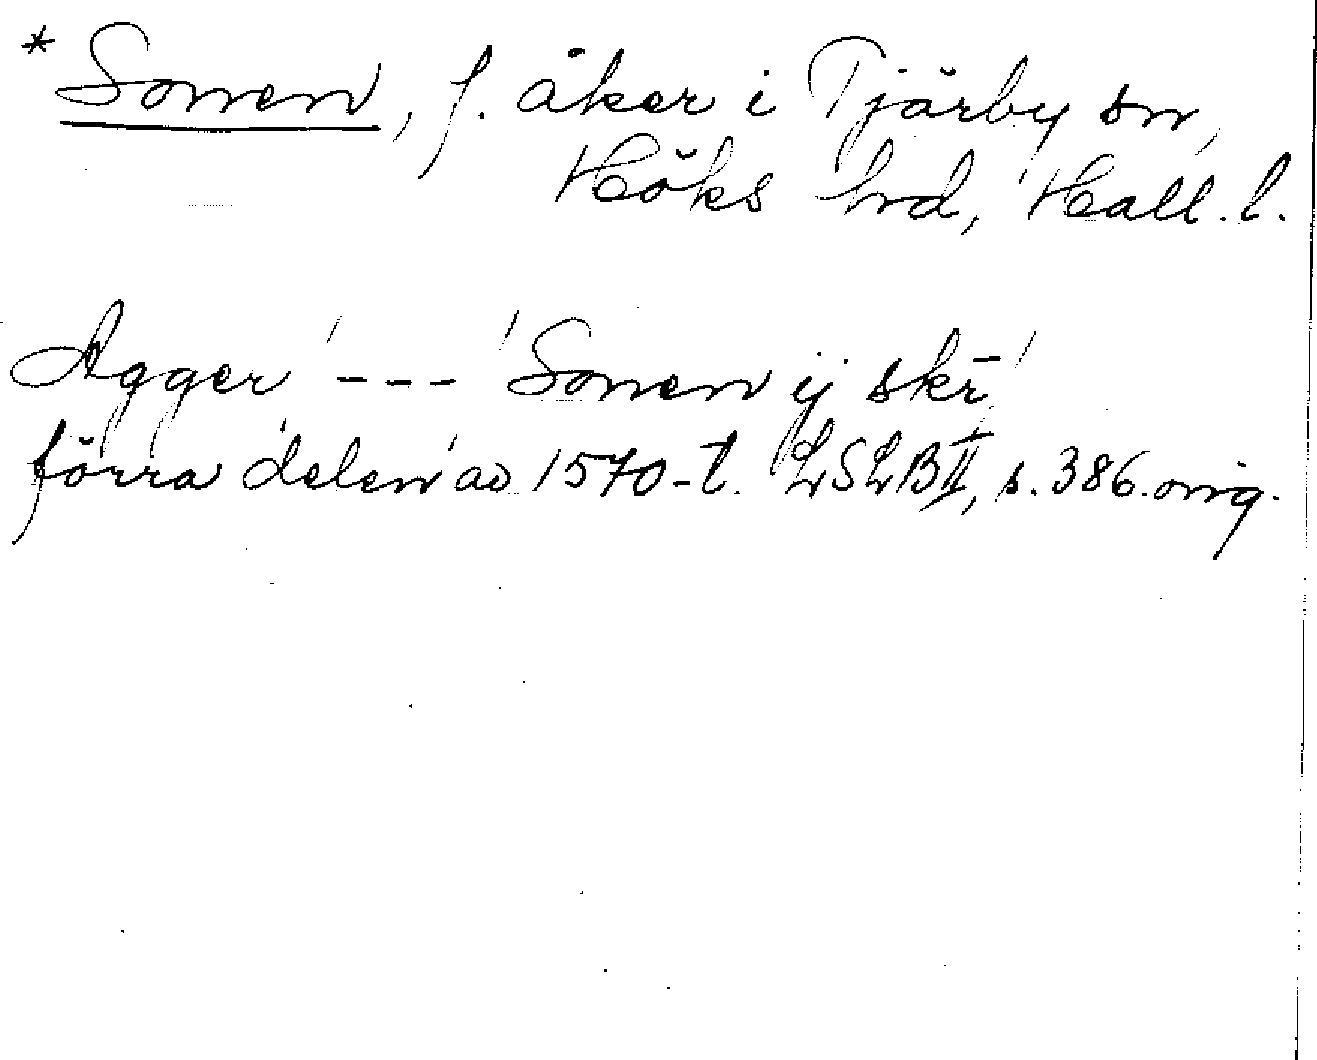 *Sonen, f. åker i Tjärby sn,
Höks hrd, Hall. l.
Agger' --- 'Sonen ij skr̄'
förra delen av 1570-t. LSLB II, s. 386. orig.